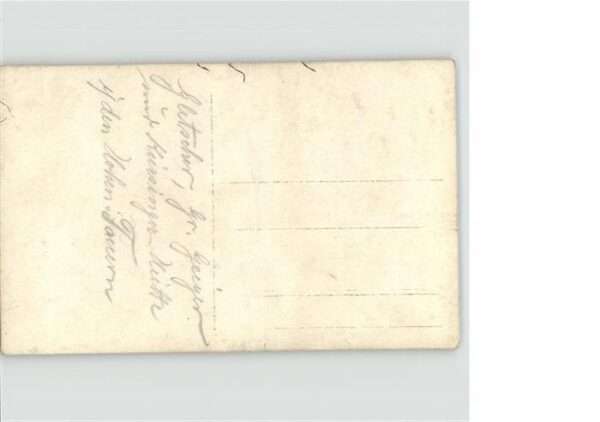 Gletscher, Gr. Geiger
und Kürsinger Hütte
i/ den Hohen Tauern